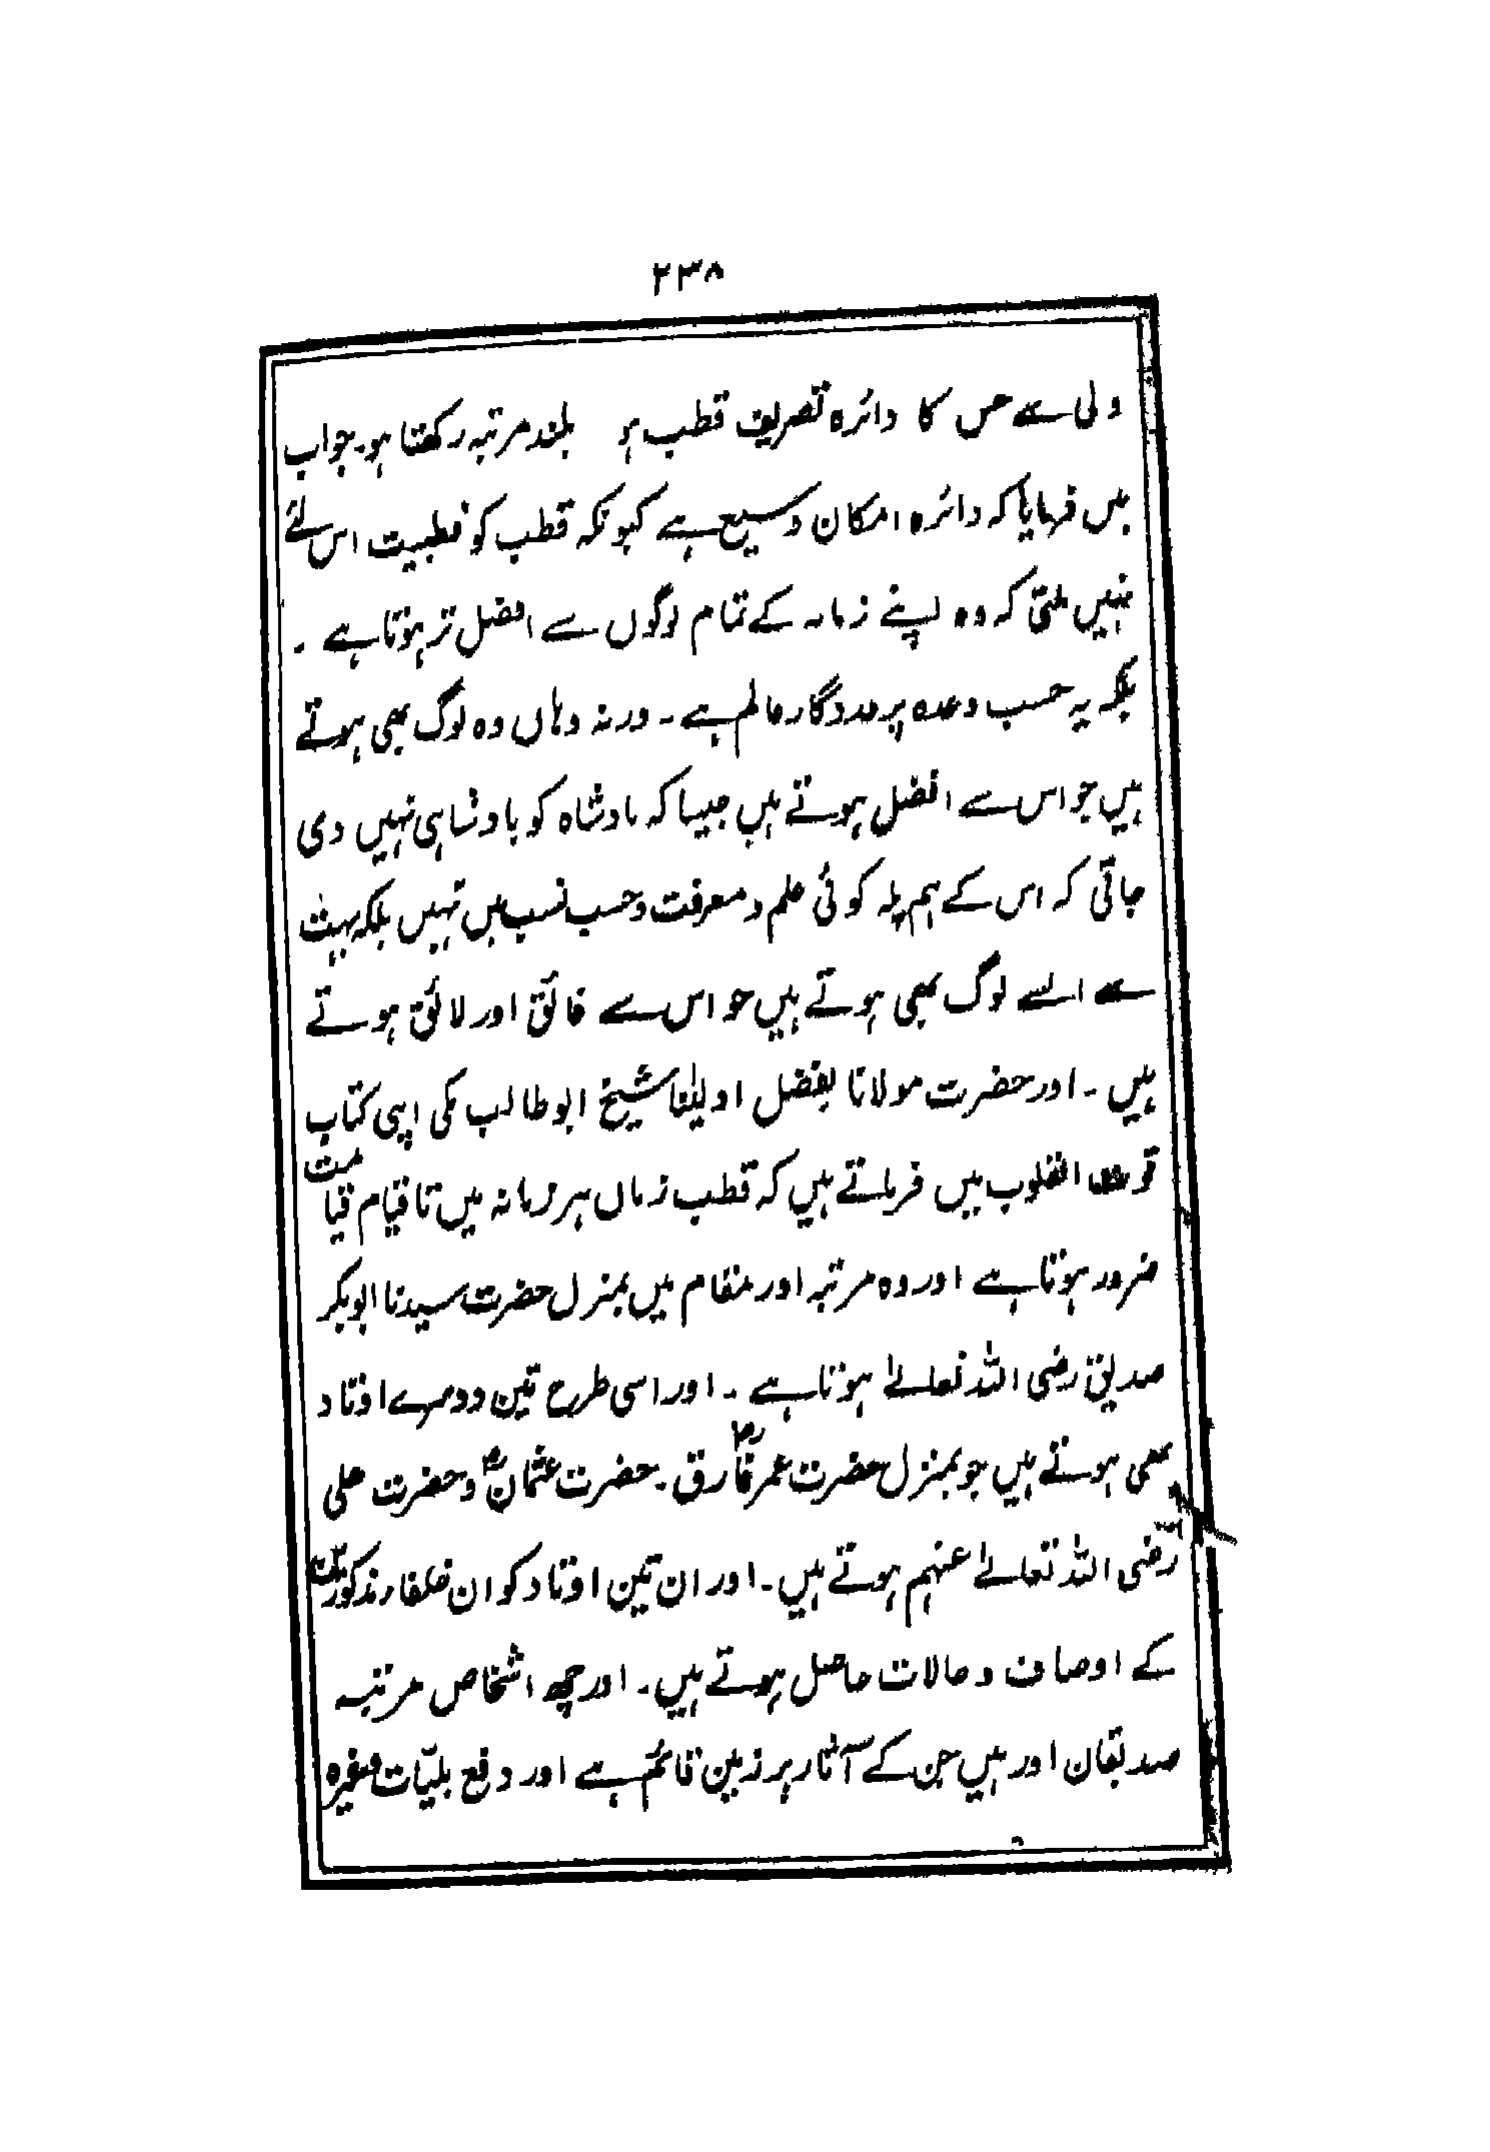 ۲۳۸
ولی سے جس کا دائرہ تصریف قطب ہو بلند مرتبہ رکھتا ہو۔ جواب
میں فرمایا کہ دائرہ امکان وسیع ہے کیونکہ قطب کو قطبیت اس لئے
نہیں ملتی کہ وہ اپنے زمانہ کے تمام لوگوں سے افضل تر ہوتا ہے ۔
بلکہ یہ حسب وعدہ پر مددگار عالم ہے ۔ ورنہ وہاں وہ لوگ بھی ہوتے
ہیں جو اس سے افضل ہوتے ہیں جیسا کہ بادشاہ کو بادشاہی نہیں دی
جاتی کہ اس کے ہم پلہ کوئی علم و معرفت و حسب نسب میں نہیں بلکہ بہت
سے ایسے لوگ بھی ہوتے ہیں جو اس سے فائق اور لائق ہوتے
ہیں ۔ اور حضرت مولانا بفضل اولیٰنا شیخ ابو طالب مکی اپنی کتاب
قوت القلوب میں فرماتے ہیں کہ قطب زماں ہر زمانہ میں تا قیام قیامت
ضرور ہوتا ہے اور وہ مرتبہ اور مقام میں بمنزل حضرت سیدنا ابوبکر
صدیق رضی اللہ تعالےٰ ہوتا ہے ۔ اور اسی طرح تین دوسرے اوتاد
بھی ہوتے ہیں جو بمنزل حضرت عمر فارق رض ۔ حضرت عثمان رض و حضرت علی
رضی اللہ تعالےٰ عنہم ہوتے ہیں ۔ اور ان تین اوتاد کو ان خلفاء مذکورین
کے اوصاف و حالات حاصل ہوتے ہیں ۔ اور چھ اشخاص مرتبہ
صدیقان اور ہیں جن کے آثار پر زمین قائم ہے اور دفع بلیّات وغیرہ